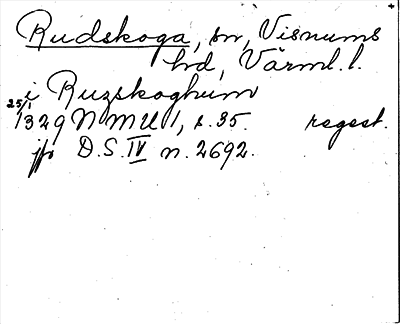 Rudskoga, sn, Visnums
hd, Värml. l.
i Ruzskoghum
25/1 1329 NMU 1, s. 35. regest.
jfr D.S. IV n. 2692.